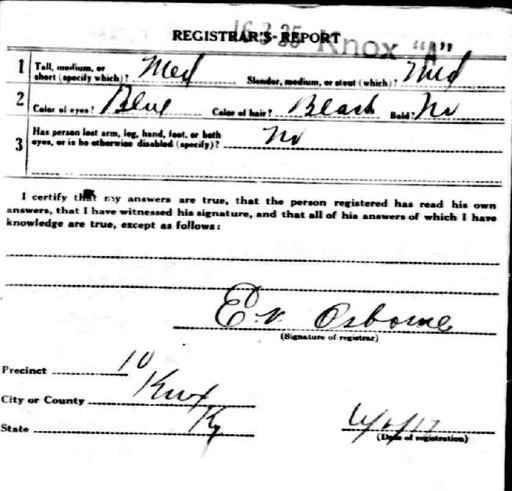 16 3 35 Knox "A"
REGISTRAR'S REPORT
1 Tall, medium, or short (specify which)? Med Slender, medium, or stout (which)? Med
2 Color of eyes? Blue Color of hair? Black Bald? No
3 Has person lost arm, leg, hand, foot, or both eyes, or is he otherwise disabled (specify)? no
I certify that my answers are true, that the person registered has read his own
answers, that I have witnessed his signature, and that all of his answers of which I have
knowledge are true, except as follows:
E. V. Osborne
(Signature of registrar)
Precinct 10
City or County Knox
State Ky
6/5/17
(Date of registration)